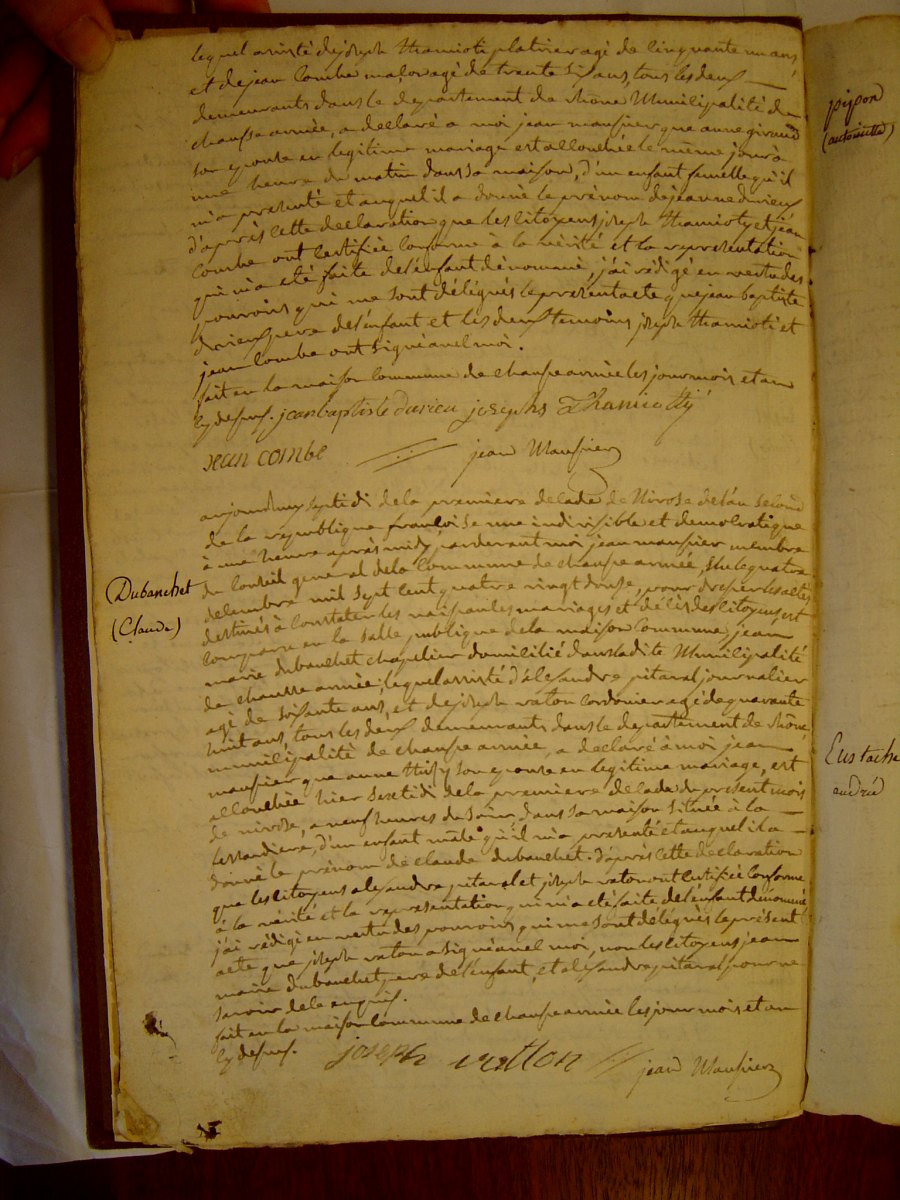 lequel assisté de joseph thamioti platrier agé de cinquante un ans,
et de jean Combe maçon agé de trente six ans, tous les deux
demeurants dans le departement de rhône Municipalité de
chausse armée, a declaré a moi jean maussier que anne giraud
son epouse en legitime mariage est allouchée le même jour à
une heure du matin dans sa maison, d'un enfant femelle qu'il
m'a presenté et auquel il a donné le prénom de jeanne durieu
d'après cette declaration que les Citoyens joseph thamioty et jean
Combe ont certifiée conforme à la vérité et la representation
qui m'a été faite de l'enfant dénommé, j'ai rédigé en vertu des
pouvoirs qui me sont délégués le present acte que jean baptiste
durieu pere de l'enfant et les deux temoins joseph thamioti et
jean Combe ont signé avec moi.
fait en la maison Commune de chausse armée les jour mois et an
cy dessus. jean baptiste durieu josephs Thamiotty
jean combe jean Maussier
aujourd'huy septidi de la premiere decade de Nivose de l'an second
de la republique françoise une indivisible et democratique
à une heure après midy, par devant moi jean maussier membre
du Conseil general de la Commune de chausse armée, élu le quatre
decembre mil sept cent quatre vingt douze, pour dresser les actes
destinés à constater les naissances mariages et décès des citoyens, est
comparu en la salle publique de la maison Commune, jean
marie dubanchet chapelier domicilié dans ladite Municipalité
de chausse armée, lequel assisté d'alexandre pitaval journalier
agé de soixante ans, et de joseph vaton cordonier agé de quarante
huit ans, tous les deux demeurants dans le departement de rhône,
municipalité de chausse armée, a declaré à moi jean
maussier que anne son epouse en legitime mariage, est
allouchée hier sextidi de la premiere decade du present mois
de nivose, a neuf heures du soir, dans sa maison située à la
d'un enfant mâle qu'il m'a presenté et auquel il a
donné le prénom de claude dubanchet. d'après cette declaration
que les citoyens alexandre pitaval et joseph vaton ont certifiée conforme
à la vérité et la representation qui m'a été faite de l'enfant dénommé,
j'ai rédigé en vertu des pouvoirs qui me sont délégués le présent
acte que joseph vaton a signé avec moi, non les citoyens jean
marie dubanchet pere de l'enfant, et alexandre pitaval pour ne
savoir de le enquis.
fait en la maison Commune de chausse armée les jour mois et an
cy dessus. joseph vatton jean Maussier
Dubanchet
(Claude)
pipon
(antoinette)
Eustache
andré